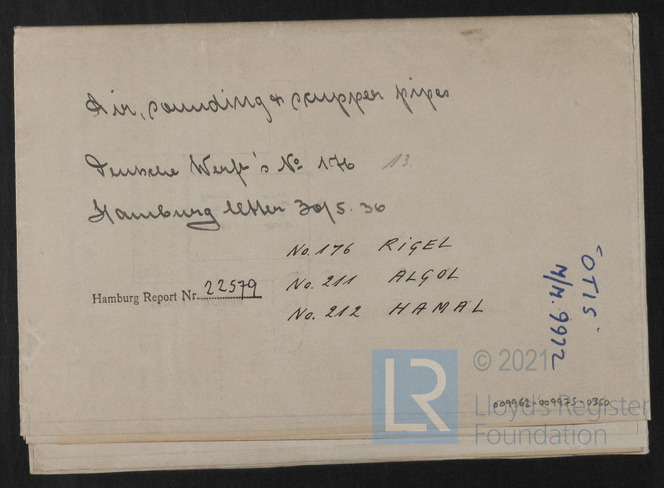 Air, sounding & scupper pipes
Deutsche Werft's No 176 13.
Hamburg letter 30/5.36
No. 176 RIGEL
No. 211 ALGOL
No. 212 HAMAL
Hamburg Report Nr. 22579
"OTIS"
M/N. 9972
009962-009975-0360
LR
© 2021
Lloyd's Register
Foundation